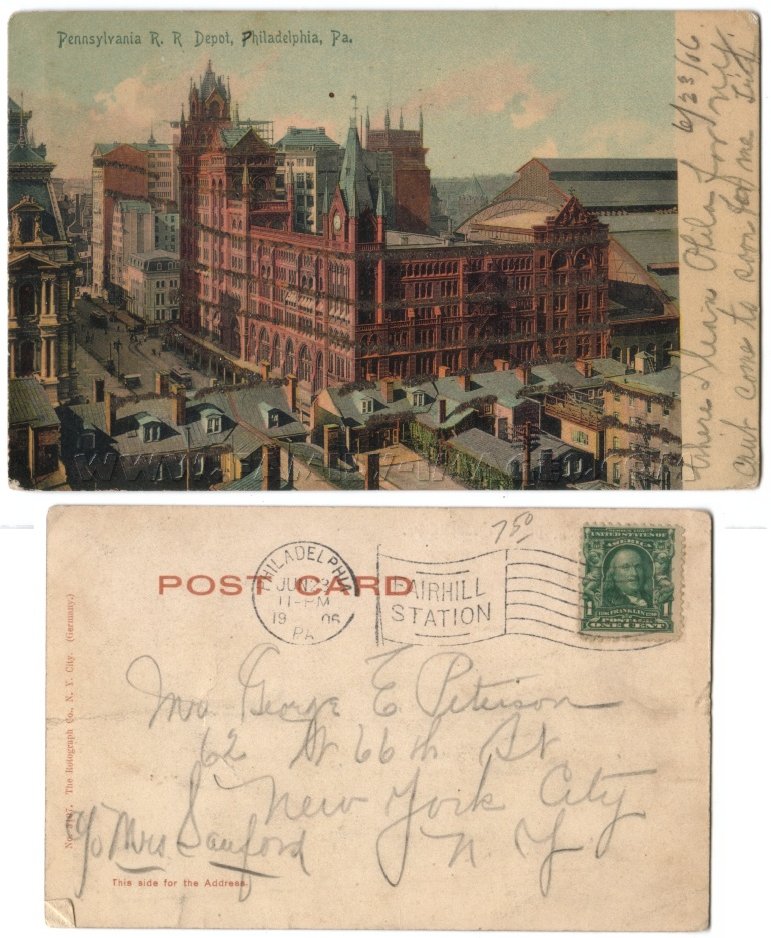 Pennsylvania R. R Depot, Philadelphia, Pa.
6/23/06
where I leave Phila for N.Y.
Cant come to soon for me
7 50
POST CARD
PHILADELPHIA
JUN 23
11-PM
1906
PA
FAIRHILL
STATION
UNITED STATES OF
AMERICA
1 FRANKLIN 1
POSTAGE
ONE CENT
The Rotograph Co., N. Y. City. (Germany.)
Mrs George E Peterson
62 W 66th St
New York City
N. Y.
c/o Mrs Sanford
This side for the Address.